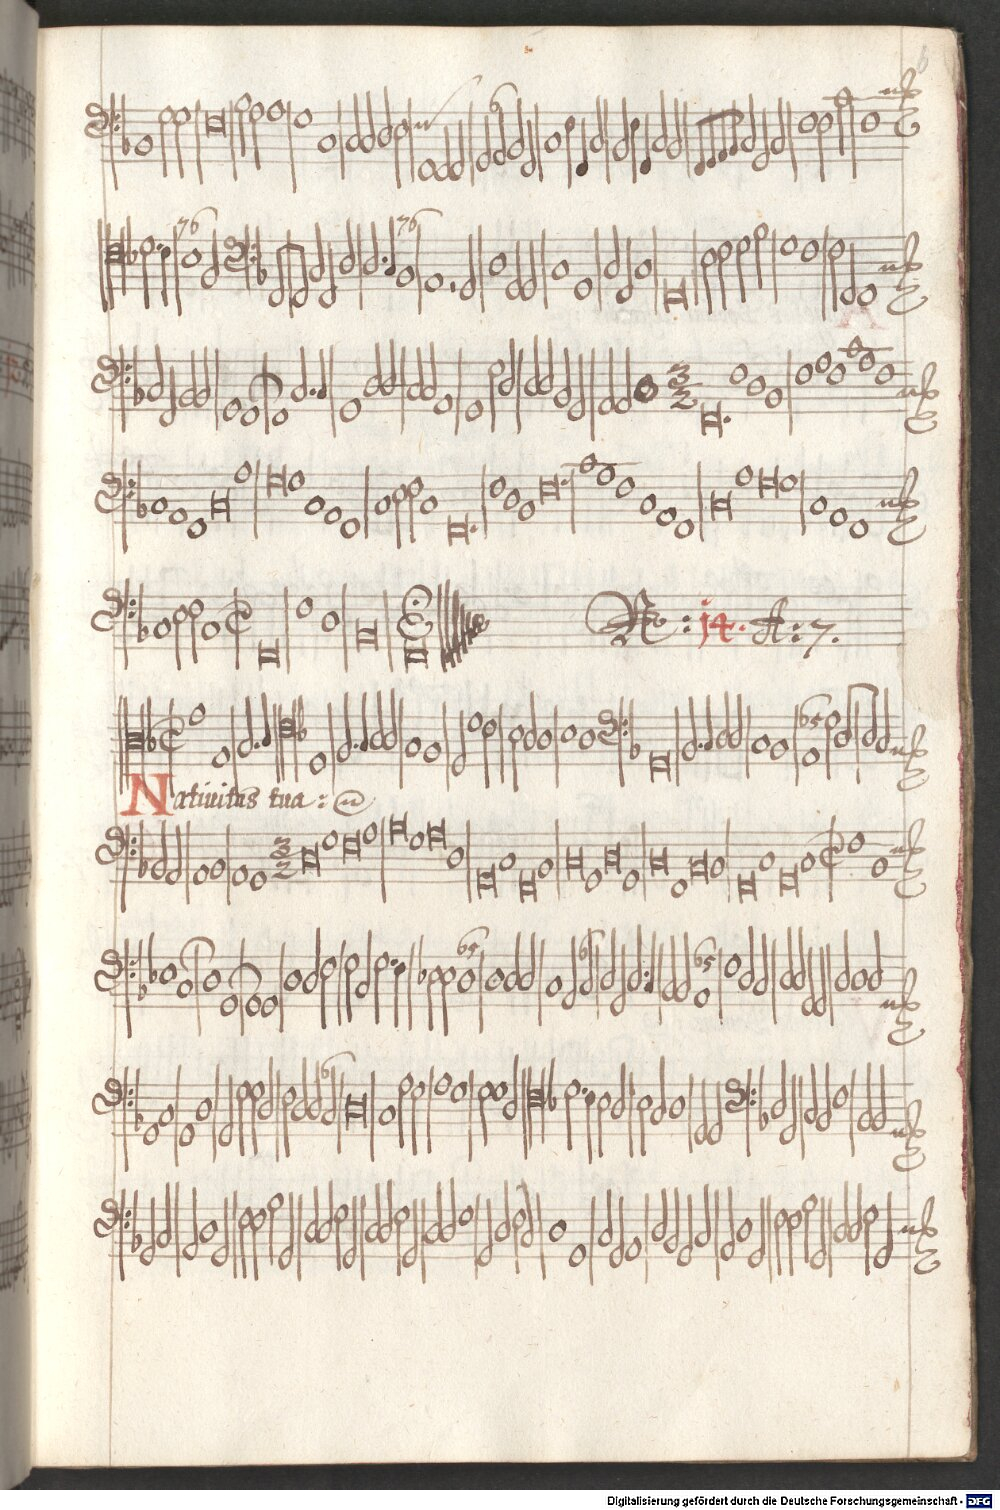 6
6
76 76
3
2
N: 14. A: 7.
b5
Natiuitas tua:
3
2
b5 b b5
b
Digitalisierung gefördert durch die Deutsche Forschungsgemeinschaft - DFG